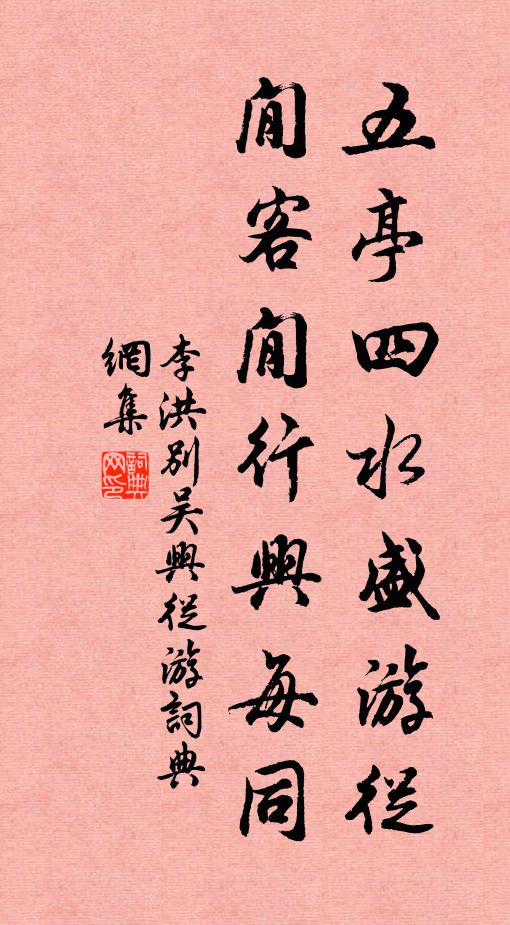 五亭四水盛游從
閒客閒行興每同
李洪別吴興從游詞典
網集
詞典網印